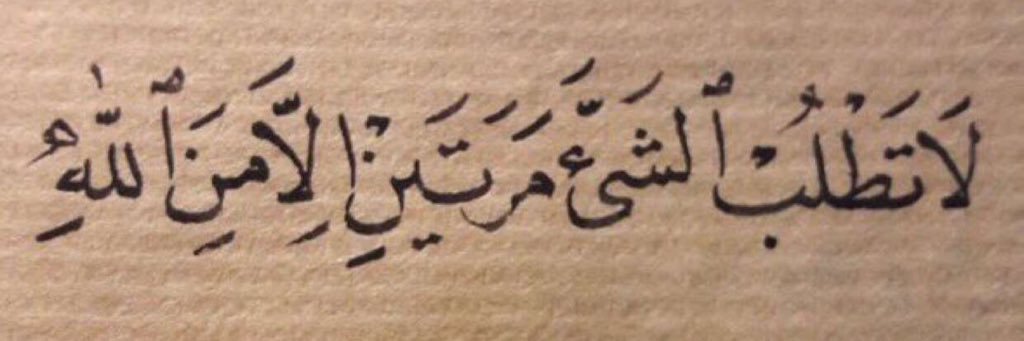 لَا تَطْلُبْ ٱلشَّىْءَ مَرَّتَيْنِ إِلَّا مِنَ ٱللّٰهِ